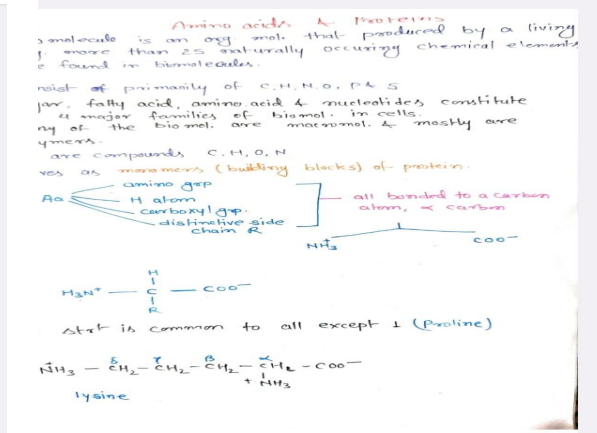 Amino acids & Proteins
molecule is an org mol. that produced by a living
more than 25 naturally occuring chemical elements
found in biomolecules.
primarily of C, H, N, O, P & S
fatty acid, amino acid & nucleotides constitute
4 major families of biomol. in cells.
of the biomol. are macromol. & mostly are
ymers.
are compounds C, H, O, N
as monomers (building blocks) of protein.
Aa
amino grp
H atom
carboxyl grp.
distinctive side chain R
all bonded to a carbon atom, α carbon
NH₃⁺ COO⁻
H
H₃N⁺ — C — COO⁻
R
strt is common to all except 1 (Proline)
δ γ β α
N⁺H₃ — CH₂ — CH₂ — CH₂ — CH₂ — COO⁻
+ NH₃
lysine